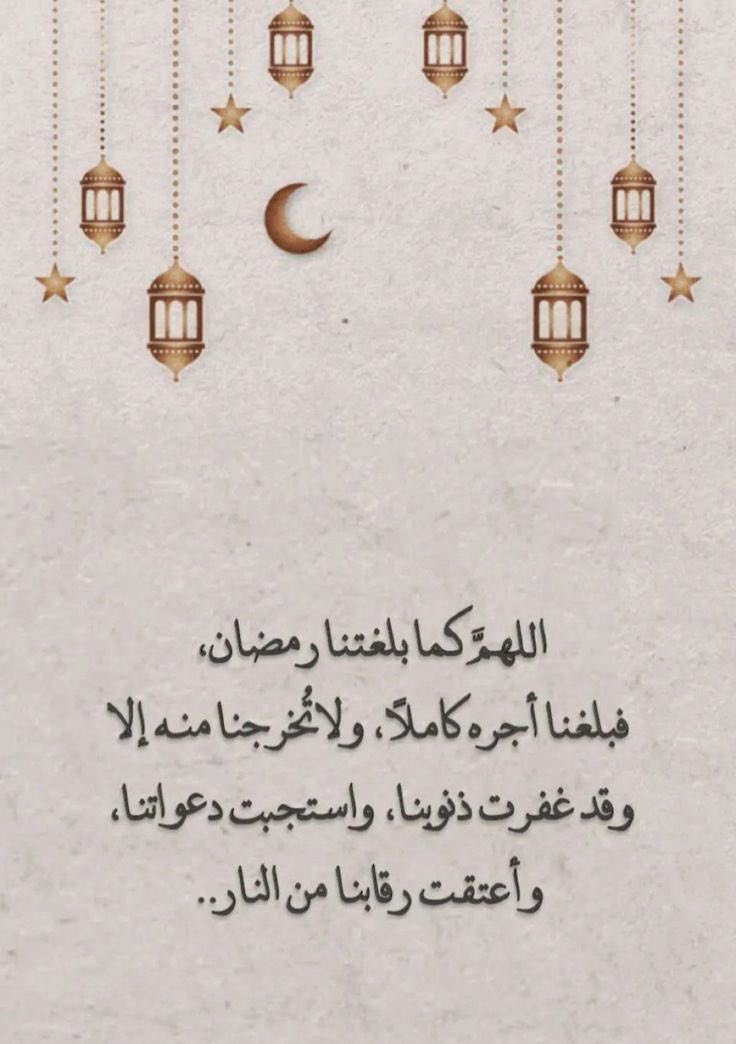 اللهمَّ كما بلغتنا رمضان،
فبلغنا أجره كاملاً، ولا تُخرجنا منه إلا
وقد غفرت ذنوبنا، واستجبت دعواتنا،
وأعتقت رقابنا من النار..